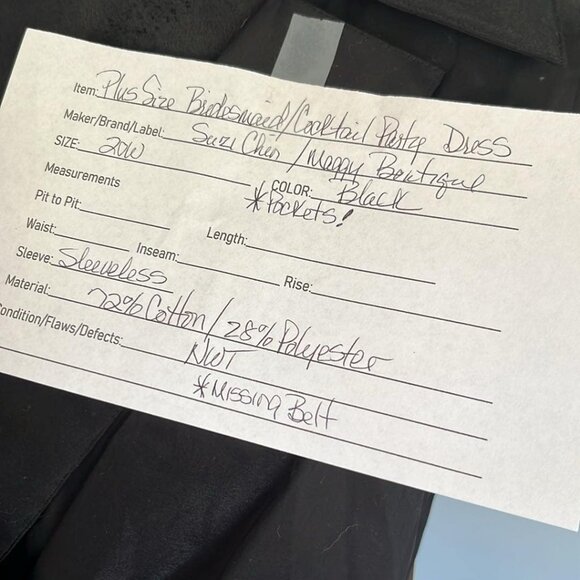 Item: Plus Size Bridesmaid/Cocktail Party Dress
Maker/Brand/Label: Suzi Chin / Maggy Boutique
SIZE: 20W COLOR: Black
Measurements *Pockets!
Pit to Pit: Length:
Waist: Inseam: Rise:
Sleeve: Sleeveless
Material: 72% Cotton / 28% Polyester
Condition/Flaws/Defects: NWT
*Missing Belt